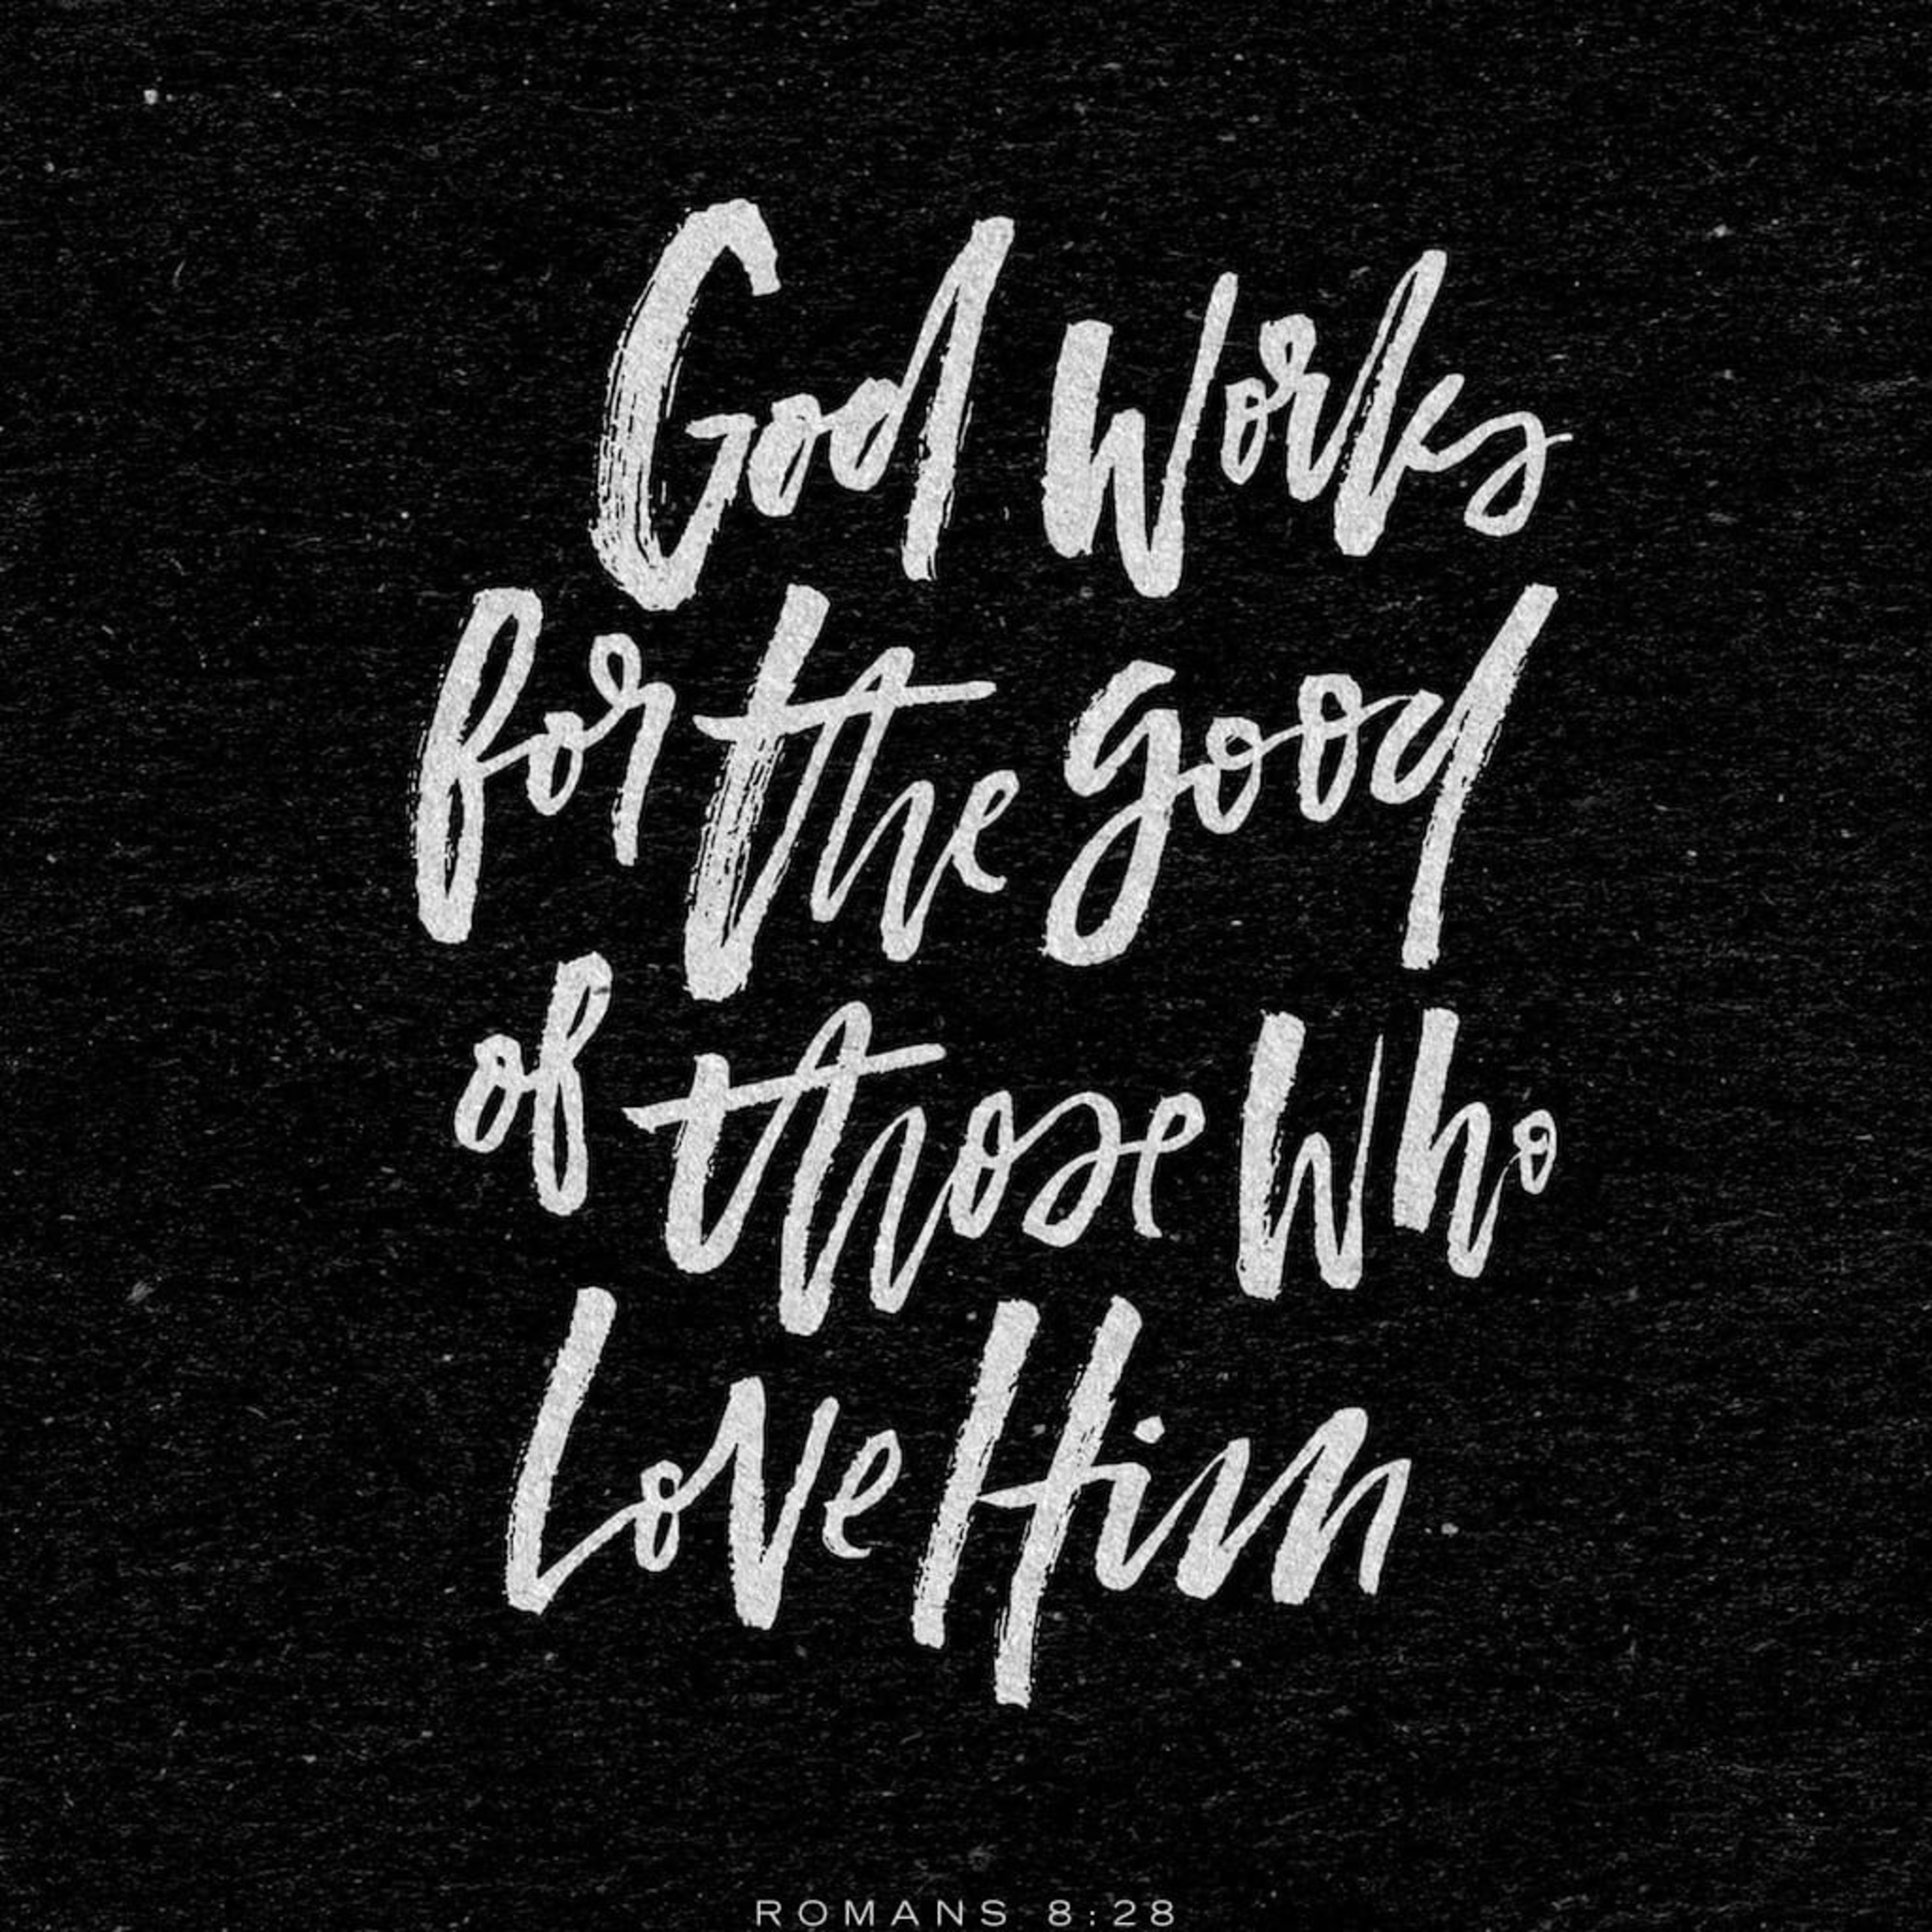 God Works
for the good
of those Who
Love Him
ROMANS 8:28